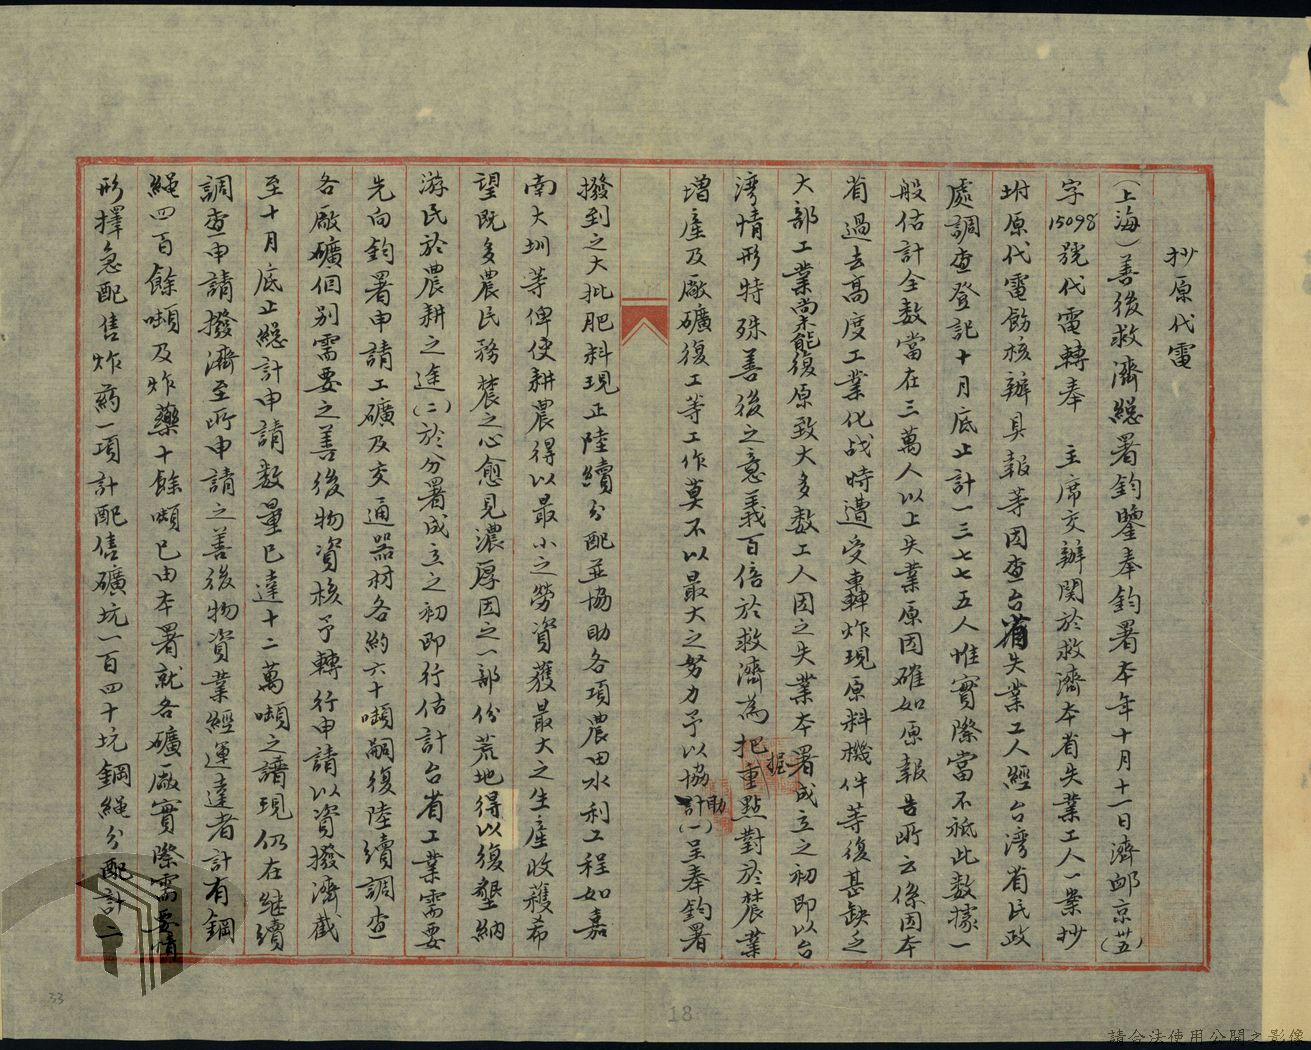 抄原代電
(上海)善後救濟總署鈞鑒奉鈞署本年十月十一日濟邮京(卅五)
字15098號代電轉奉 主席交辦関於救濟本省失業工人一案抄
坿原代電飭核辦具報等因查台省失業工人經台湾省民政
處調查登記十月底止計一三七七五人惟實際當不祗此数據一
般估計全数當在三萬人以上失業原因確如原報告所云係因本
省過去高度工業化战時遭受轟炸現原料機件等復甚缺乏
大部工業尚未能復原致大多数工人因之失業本署成立之初即以台
湾情形特殊善後之意義百倍於救濟為把握重點對於農業
增産及廠礦復工等工作莫不以最大之努力予以協助計(一)呈奉鈞署
撥到之大批肥料現正陸續分配並協助各項農田水利工程如嘉
南大圳等俾使耕農得以最小之勞資獲最大之生産收穫希
望既多農民務農之心愈見濃厚因之一部份荒地得以復墾納
游民於農耕之途(二)於分署成立之初即行估計台省工業需要
先向鈞署申請工礦及交通器材各約六十噸嗣復陸續調查
各廠礦個别需要之善後物資核予轉行申請以資撥濟截
至十月底止總計申請数量已達十二萬噸之譜現仍在继續
調查申請撥濟至所申請之善後物資業經運達者計有鋼
繩四百餘噸及炸藥十餘噸已由本署就各礦廠實際需要情
形擇急配售炸药一項計配售礦坑一百四十坑鋼繩分配計二
33
18
請合法使用公開之影像